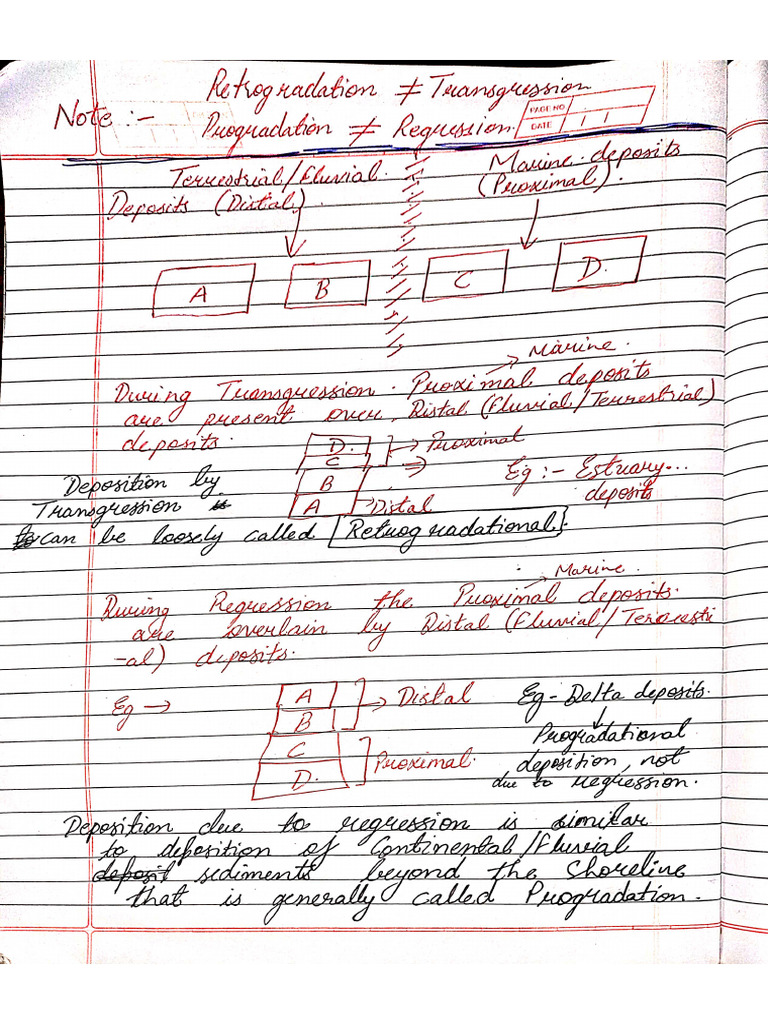 Retrogradation ≠ Transgression
Note :-
Progradation ≠ Regression.
PAGE NO
DATE
Terrestrial/Fluvial.
Deposits (Distal)
Marine deposits
(Proximal).
A
B
C
D.
→ Marine.
During Transgression. Proximal deposits
are present over Distal (Fluvial/Terrestrial)
deposits.
D.
C
→ Proximal
B
A
→ Distal
Eg :- Estuary...
deposits
Deposition by
Transgression is
to can be loosely called [Retrogradational].
→ Marine.
During Regression the Proximal deposits.
are overlain by Distal (Fluvial/Terrestri
-al) deposits.
Eg →
A
B
→ Distal
C
D.
Proximal.
Eg - Delta deposits.
↓
Progradational
deposition, not
due to regression.
Deposition due to regression is similar
to deposition of Continental/Fluvial
deposit sediments beyond the Shoreline
that is generally called Progradation.